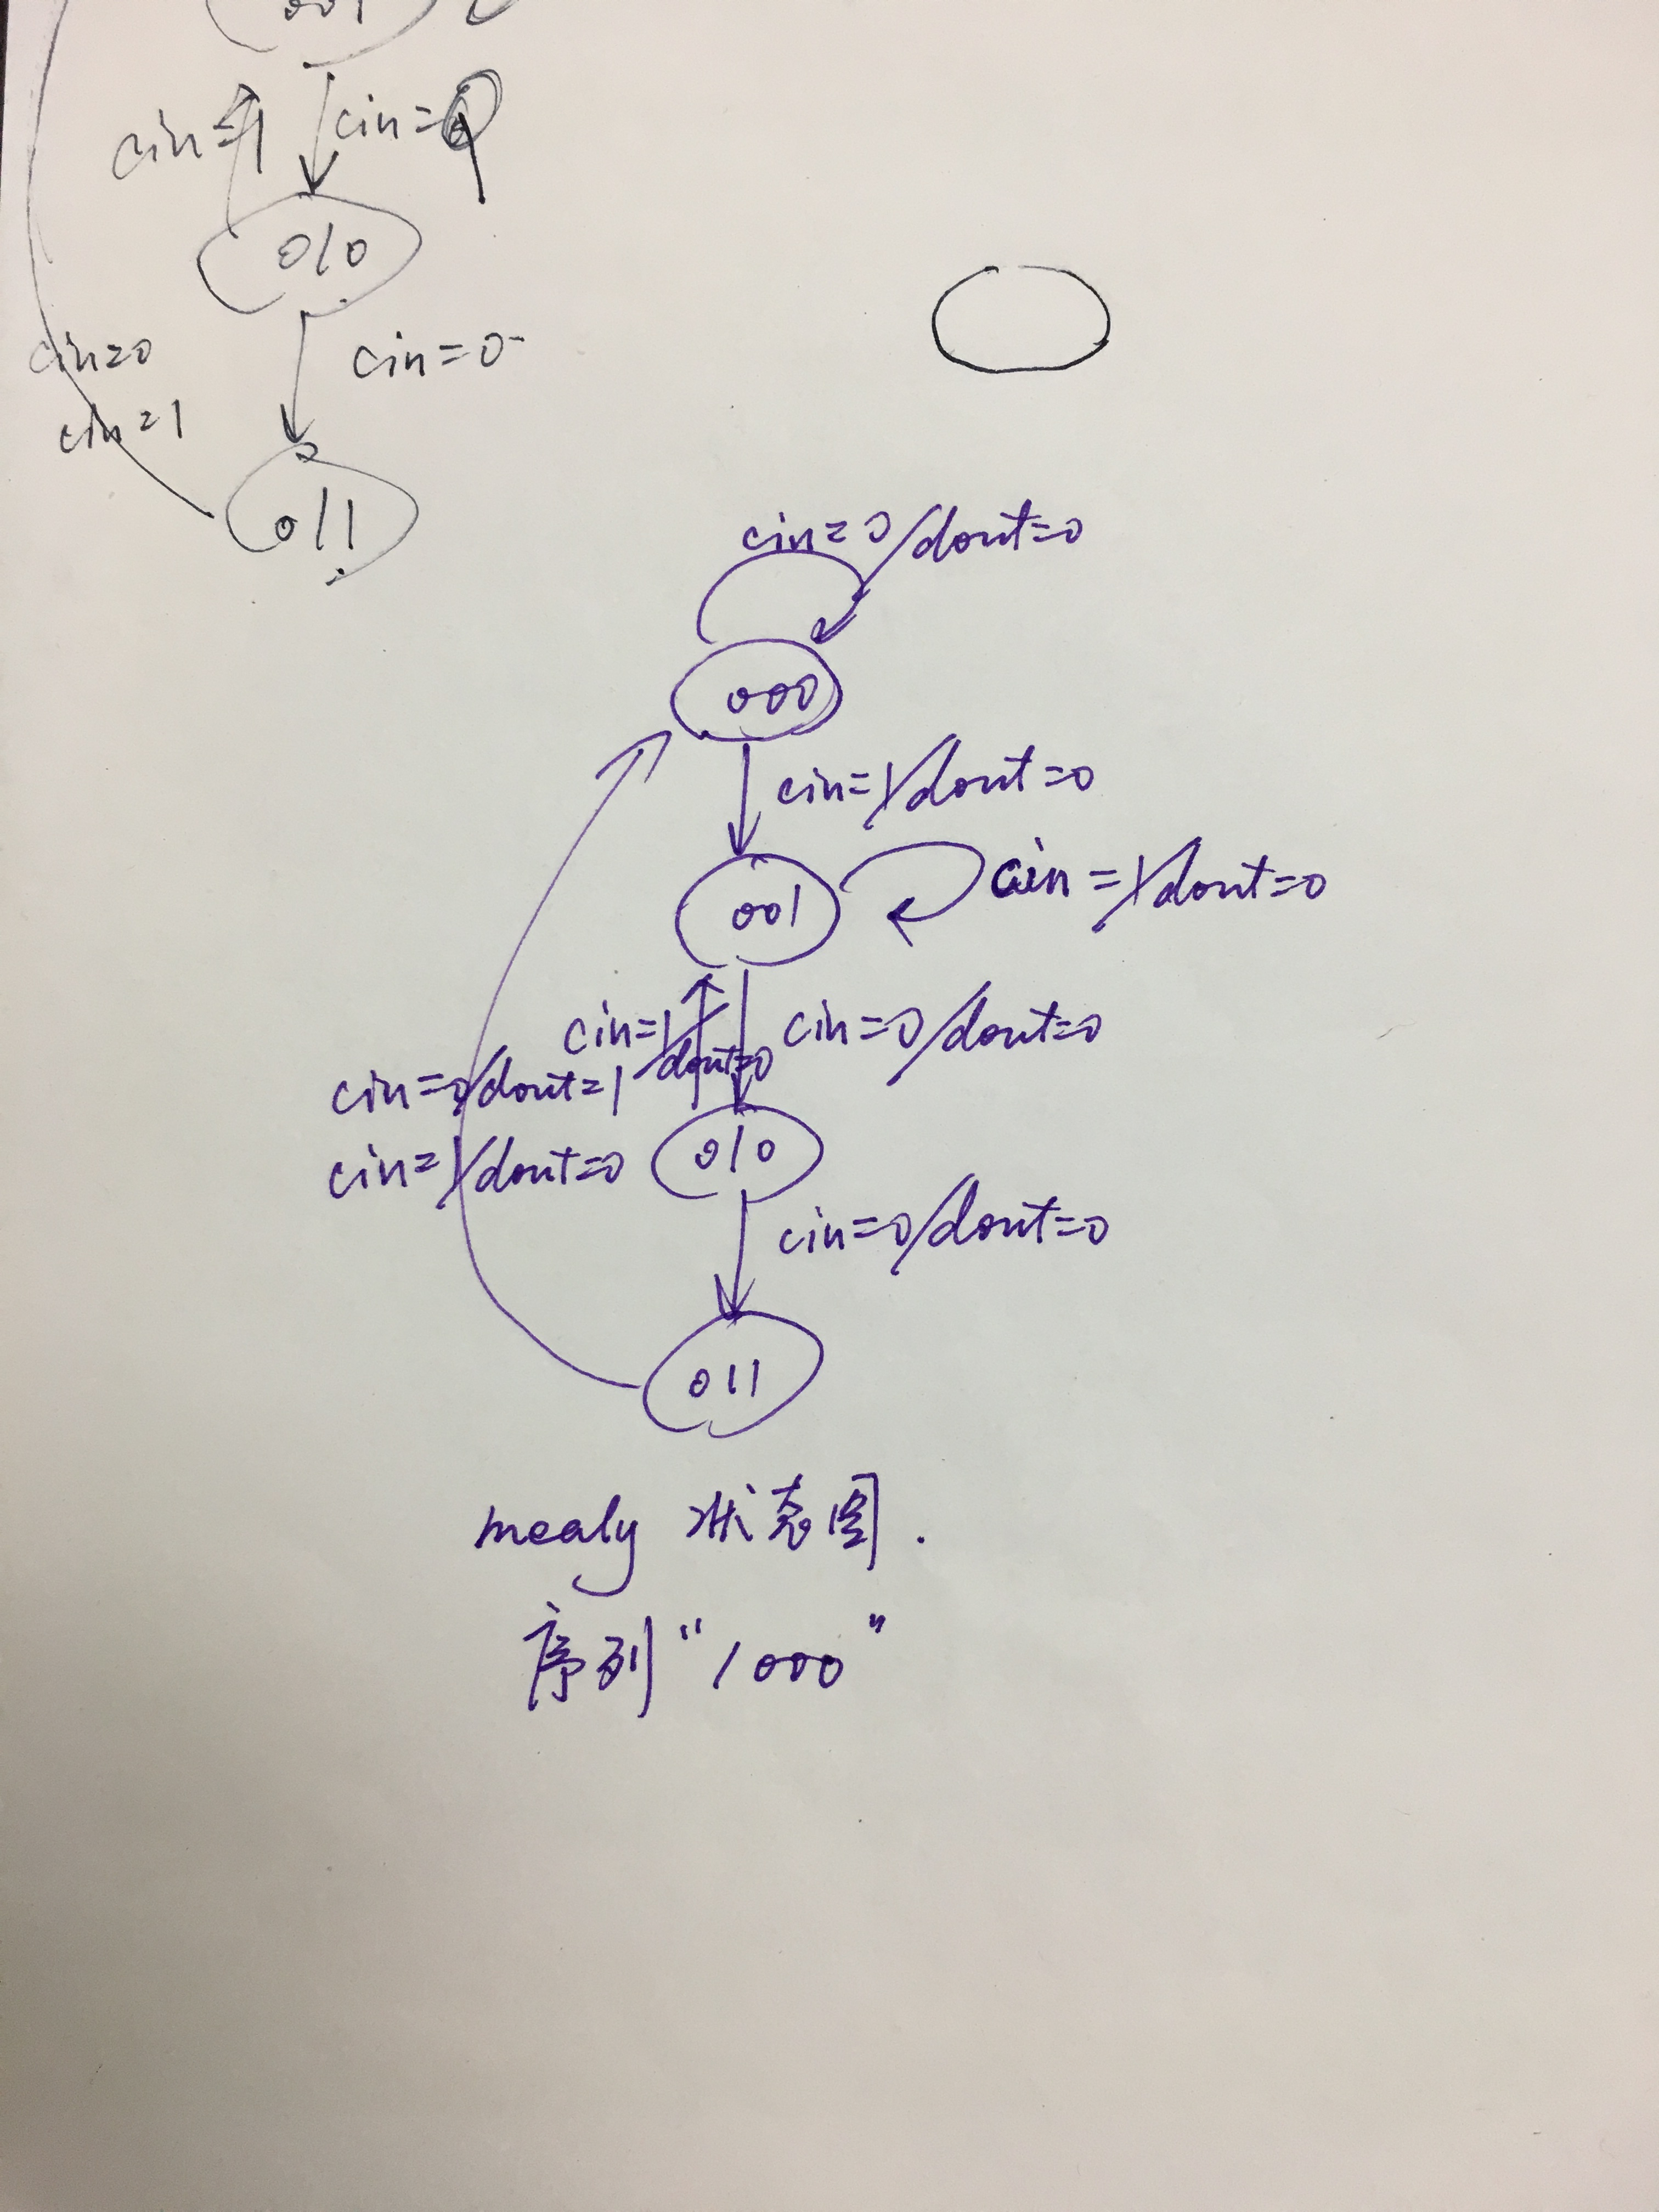 001
cin=1 cin=
010
cin=0 cin=0
cin=1
011
cin=0/dout=0
000
cin=1/dout=0
001 cin=1/dout=0
cin=1/dout=0 cin=0/dout=0
cin=0/dout=1
cin=1/dout=0 010
cin=0/dout=0
011
mealy 状态图.
序列“1000”